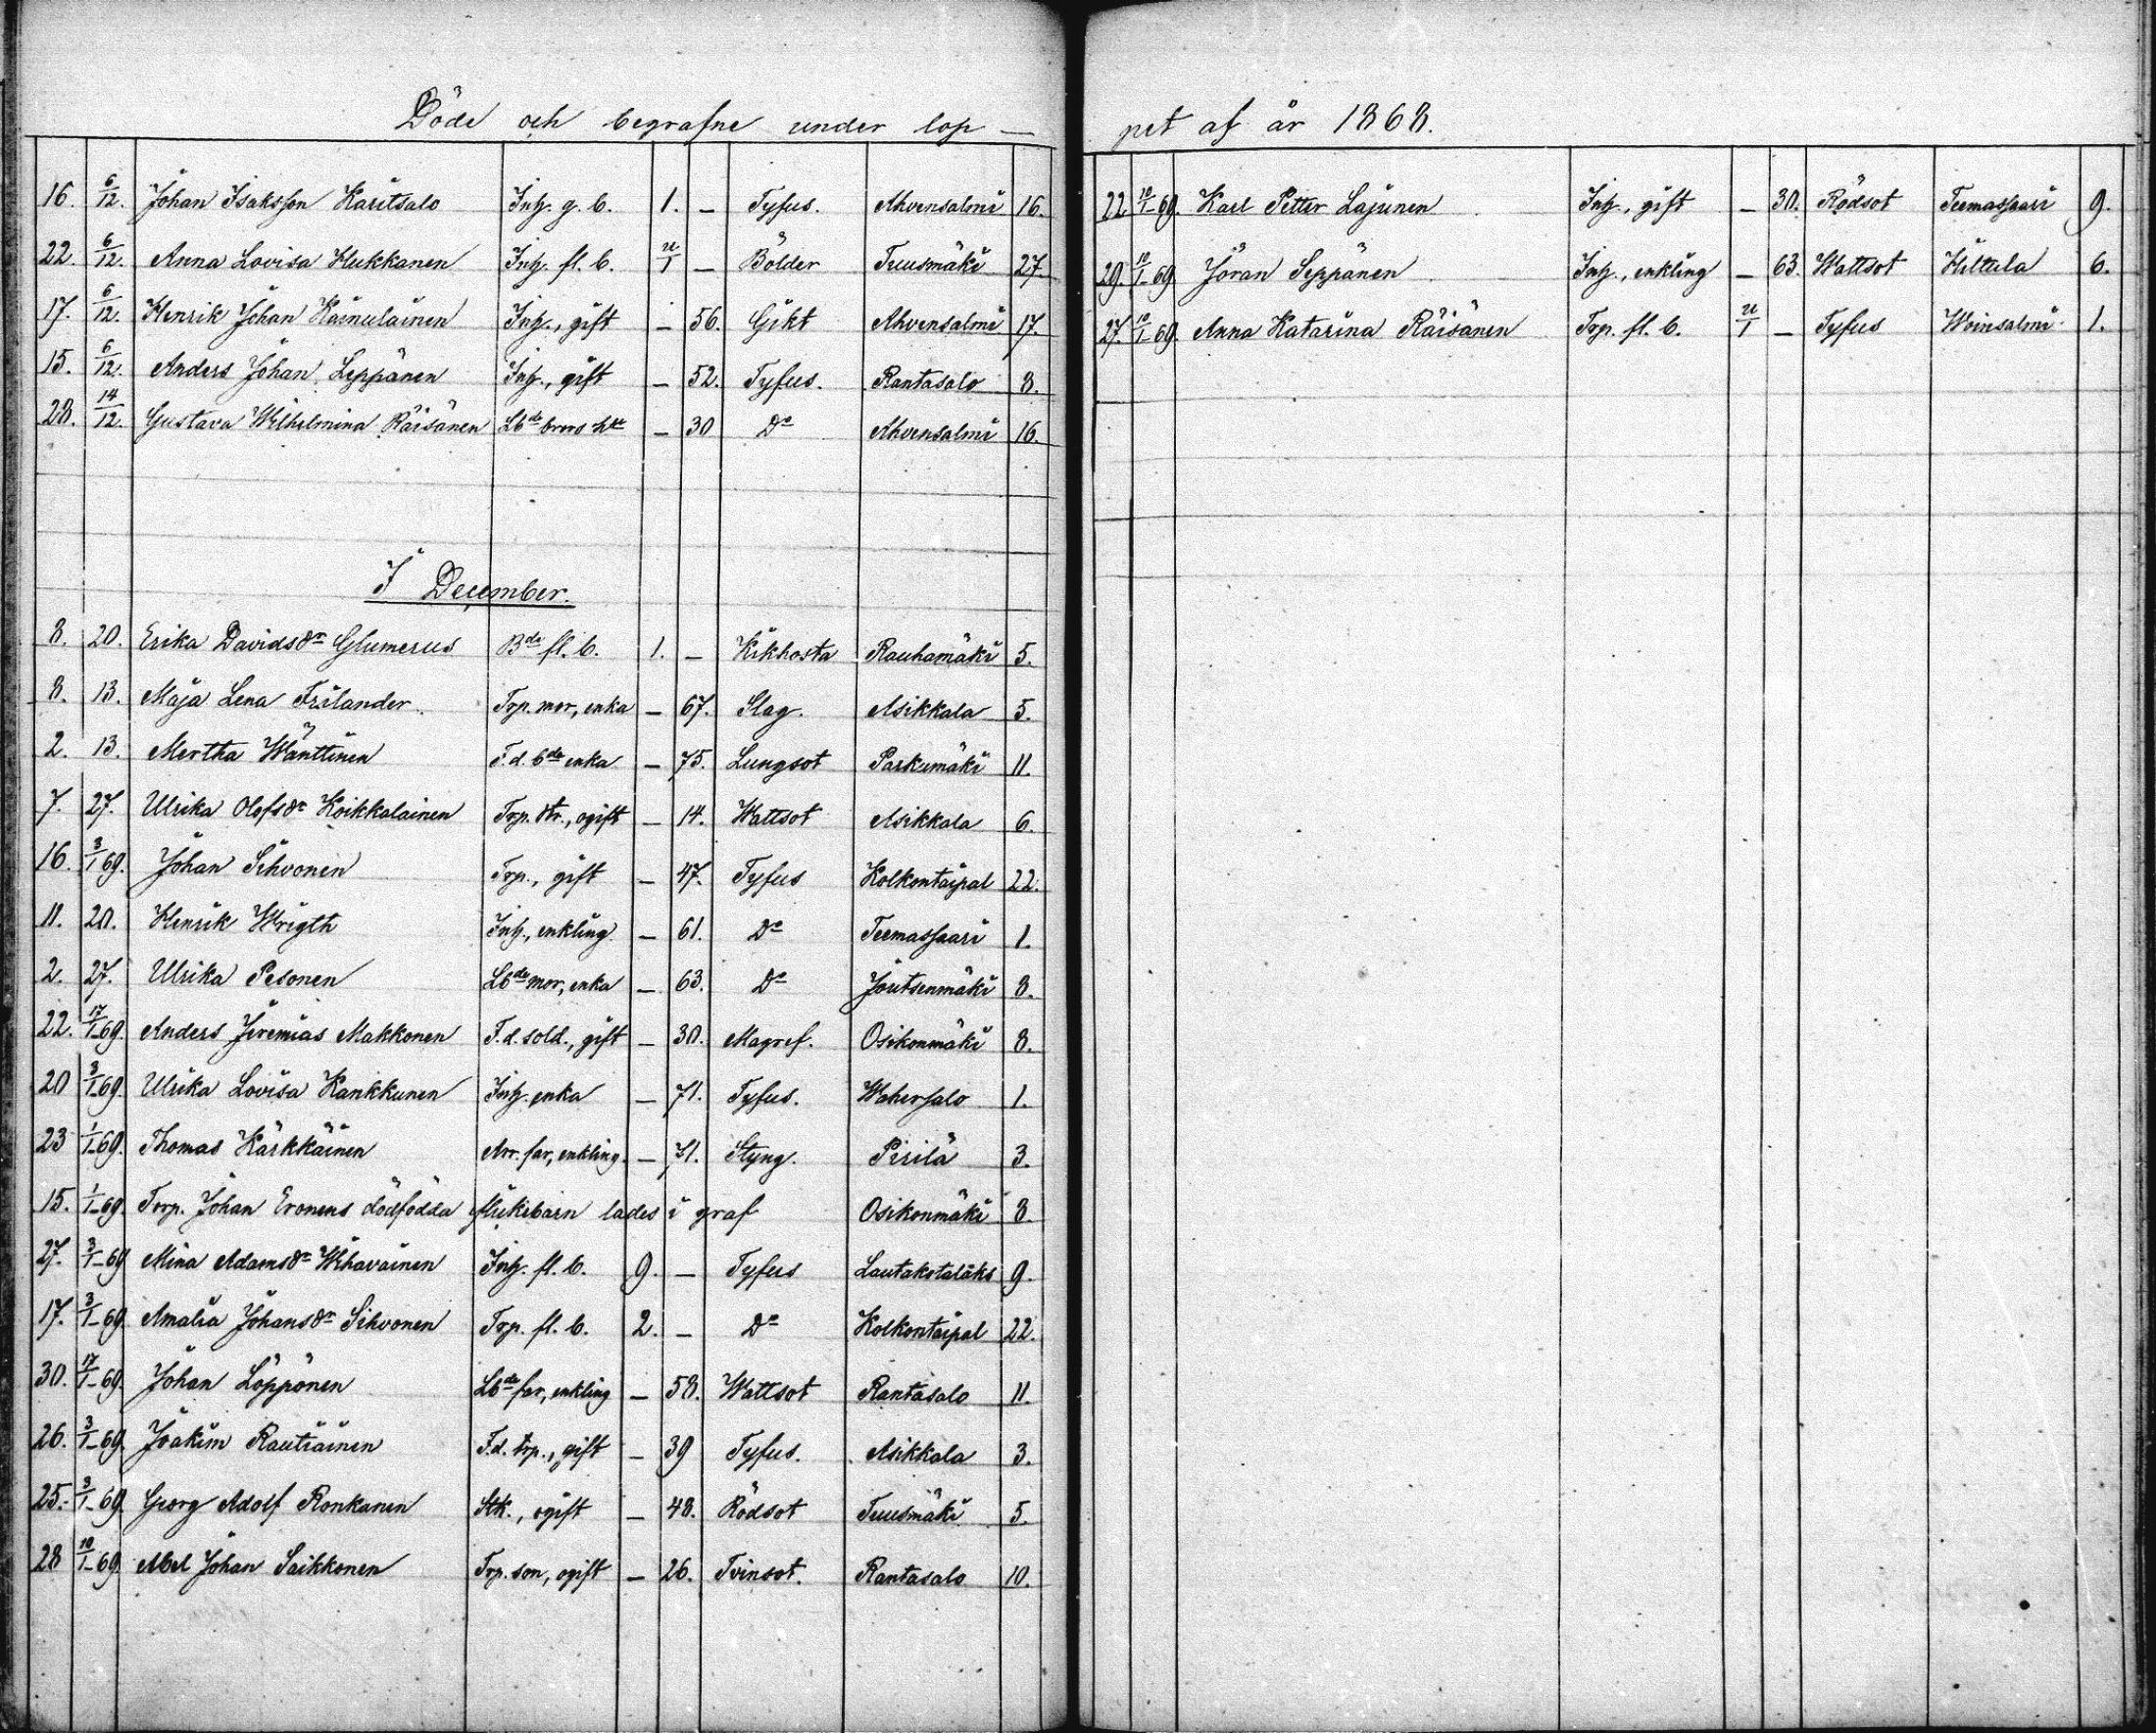 Döde och begrafne under lop —
16. 6/12. Johan Isaksson Karitsalo Inh. g. b. 1. — Tyfus. Ahvensalmi 16.
22. 6/12. Anna Lovisa Hukkanen Inh. fl. b. u/1 — Bölder Tuusmäki 27.
17. 6/12. Henrik Johan Käinuläinen Inh., gift — 56. Gikt Ahvensalmi 17.
15. 6/12. Anders Johan Leppänen Inh., gift — 52. Tyfus. Rantasalo 8.
28. 14/12. Gustava Wilhelmina Räisänen Lbde brors — 30 Do Ahvensalmi 16.
I December.
8. 20. Erika Davidsdr Glumerus Bde fl. b. 1. — Kikhosta Rauhamäki 5.
8. 13. Maja Lena Frilander Torp. mor, enka — 67. Slag. Asikkala 5.
2. 13. Mertha Wänttinen F.d. bde enka — 75. Lungsot Parkumäki 11.
7. 27. Ulrika Olofsdr Koikkalainen Torp. dtr., ogift — 14. Wattsot Asikkala 6.
16. 3/1 69. Johan Sihvonen Torp., gift — 47. Tyfus Kolkontaipal 22.
11. 20. Henrik Wrigth Inh., enkling — 61. Do Teemassaari 1.
2. 27. Ulrika Pesonen Lbde mor, enka — 63. Do Joutsenmäki 8.
22. 17/1-69. Anders Jeremias Makkonen F.d. sold., gift — 30. Magref. Osikonmäki 8.
20 3/1-69. Ulrika Lovisa Kankkunen Inh. enka — 71. Tyfus. Wahersalo 1.
23 1/1-69. Thomas Kärkkäinen Arr. far, enkling. — 71. Styng. Pirilä 3.
15. 1/1-69. Torp. Johan Eronens dödfödda flickebarn lades i graf Osikonmäki 8.
27. 3/1-69 Mina Adamsdr Wihavainen Inh. fl. b. 9. — Tyfus Lautakotalaks 9.
17. 3/1-69. Amalia Johansdr Sihvonen Torp. fl. b. 2. — Do Kolkontaipal 22.
30. 17/1-69. Johan Löppönen Lbde far, enkling — 58. Wattsot Rantasalo 11.
26. 3/1-69. Joakim Rautiainen F.d. torp., gift — 39 Tyfus. Asikkala 3.
25. 3/1-69. Georg Adolf Ronkanen Stk., ogift — 48. Rödsot Tuusmäki 5.
28 10/1-69. Abel Johan Saikkonen Torp. son, ogift — 26. Tvinsot. Rantasalo 10.
pet af år 1868.
22. 10/1-69. Karl Petter Lajunen Inh., gift — 30. Rödsot Teemassaari 9.
29. 10/1-69 Jöran Seppänen Inh., enkling — 63. Wattsot Hiltula 6.
27. 10/1-69. Anna Katarina Räisänen Torp. fl. b. u/1 — Tyfus Woinsalmi 1.